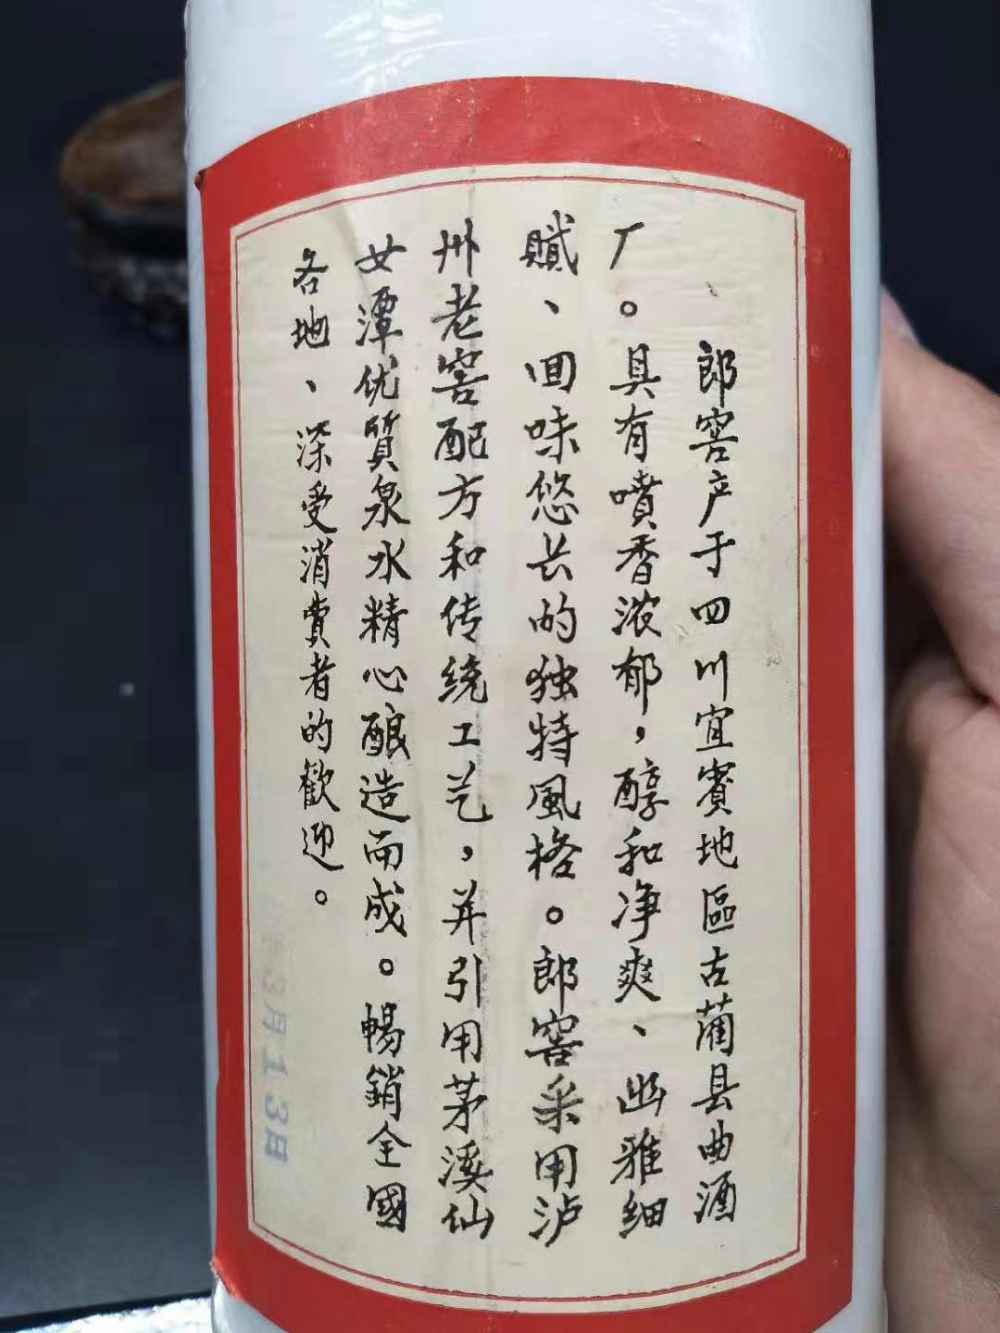 郎窖产于四川宜賓地區古藺县曲酒
厂。具有噴香浓郁，醇和净爽、幽雅细
腻、回味悠长的独特風格。郎窖采用泸
州老窖配方和传统工艺，并引用茅溪仙
女潭优質泉水精心酿造而成。暢銷全國
各地、深受消費者的歡迎。
3月13日